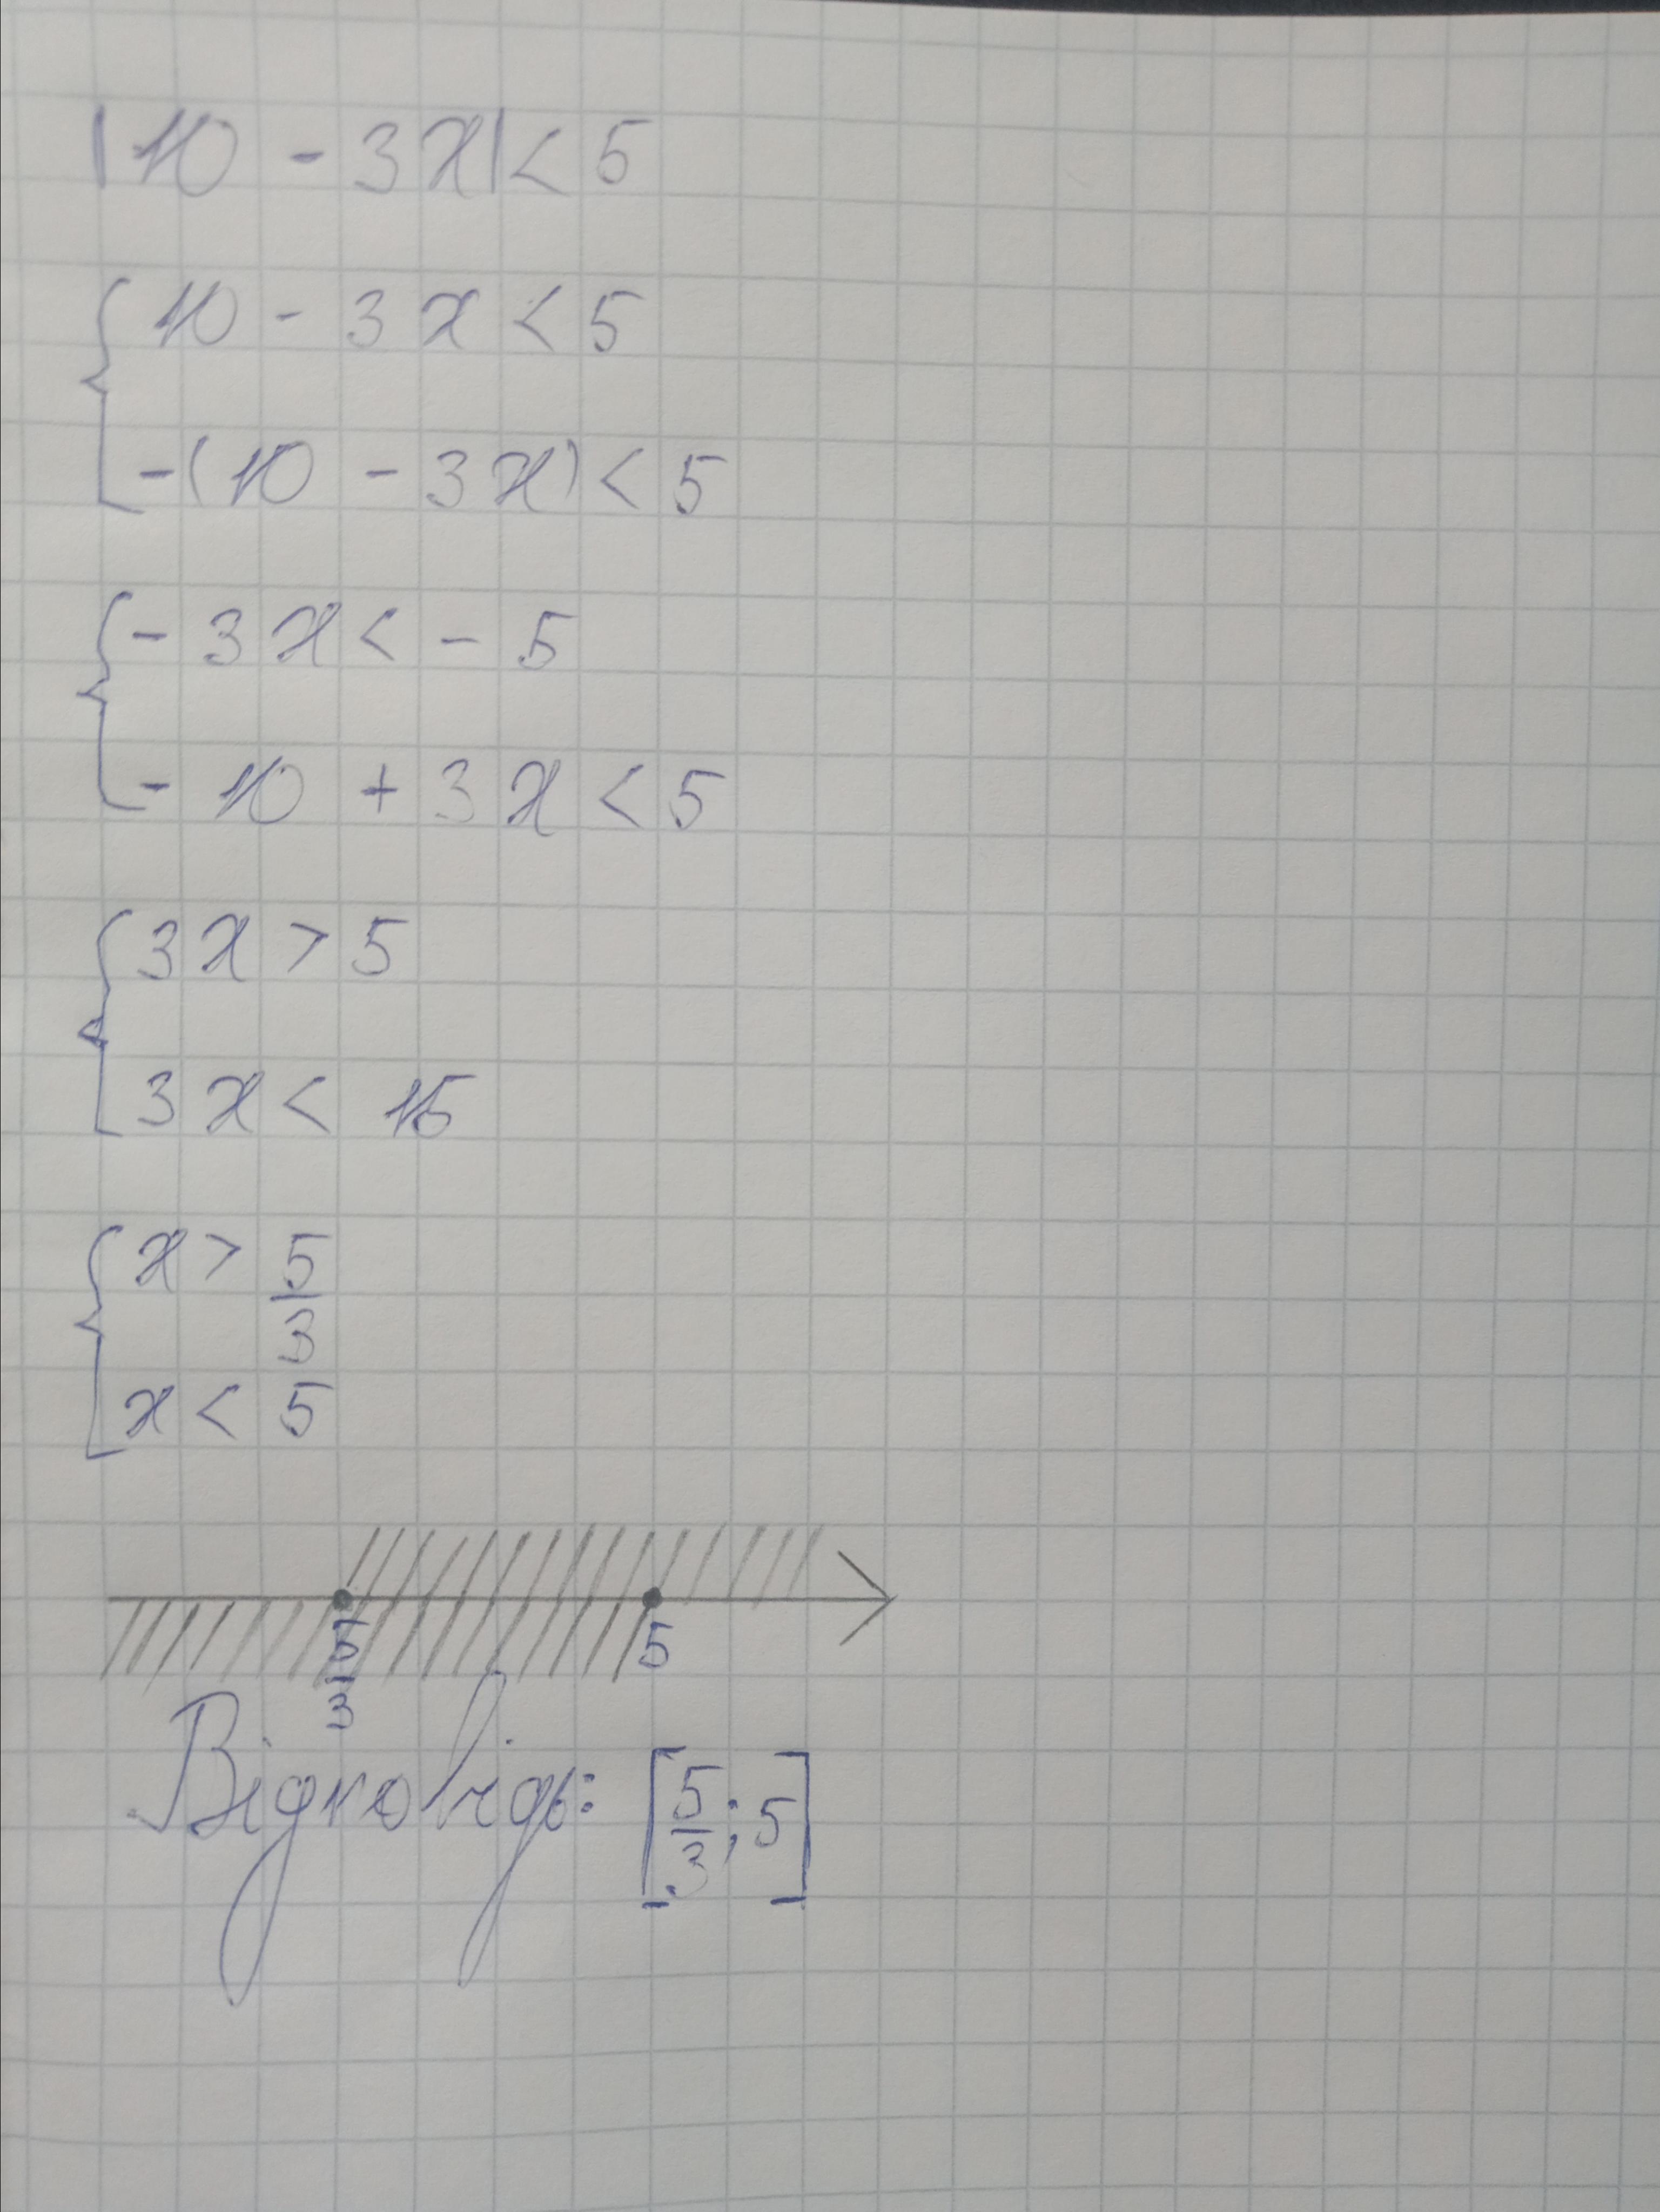 |10 - 3x| < 5
{ 10 - 3x < 5
-(10 - 3x) < 5
{ - 3x < - 5
- 10 + 3x < 5
{ 3x > 5
3x < 15
{ x > 5/3
x < 5
5/3 5
Відповідь: [5/3; 5]